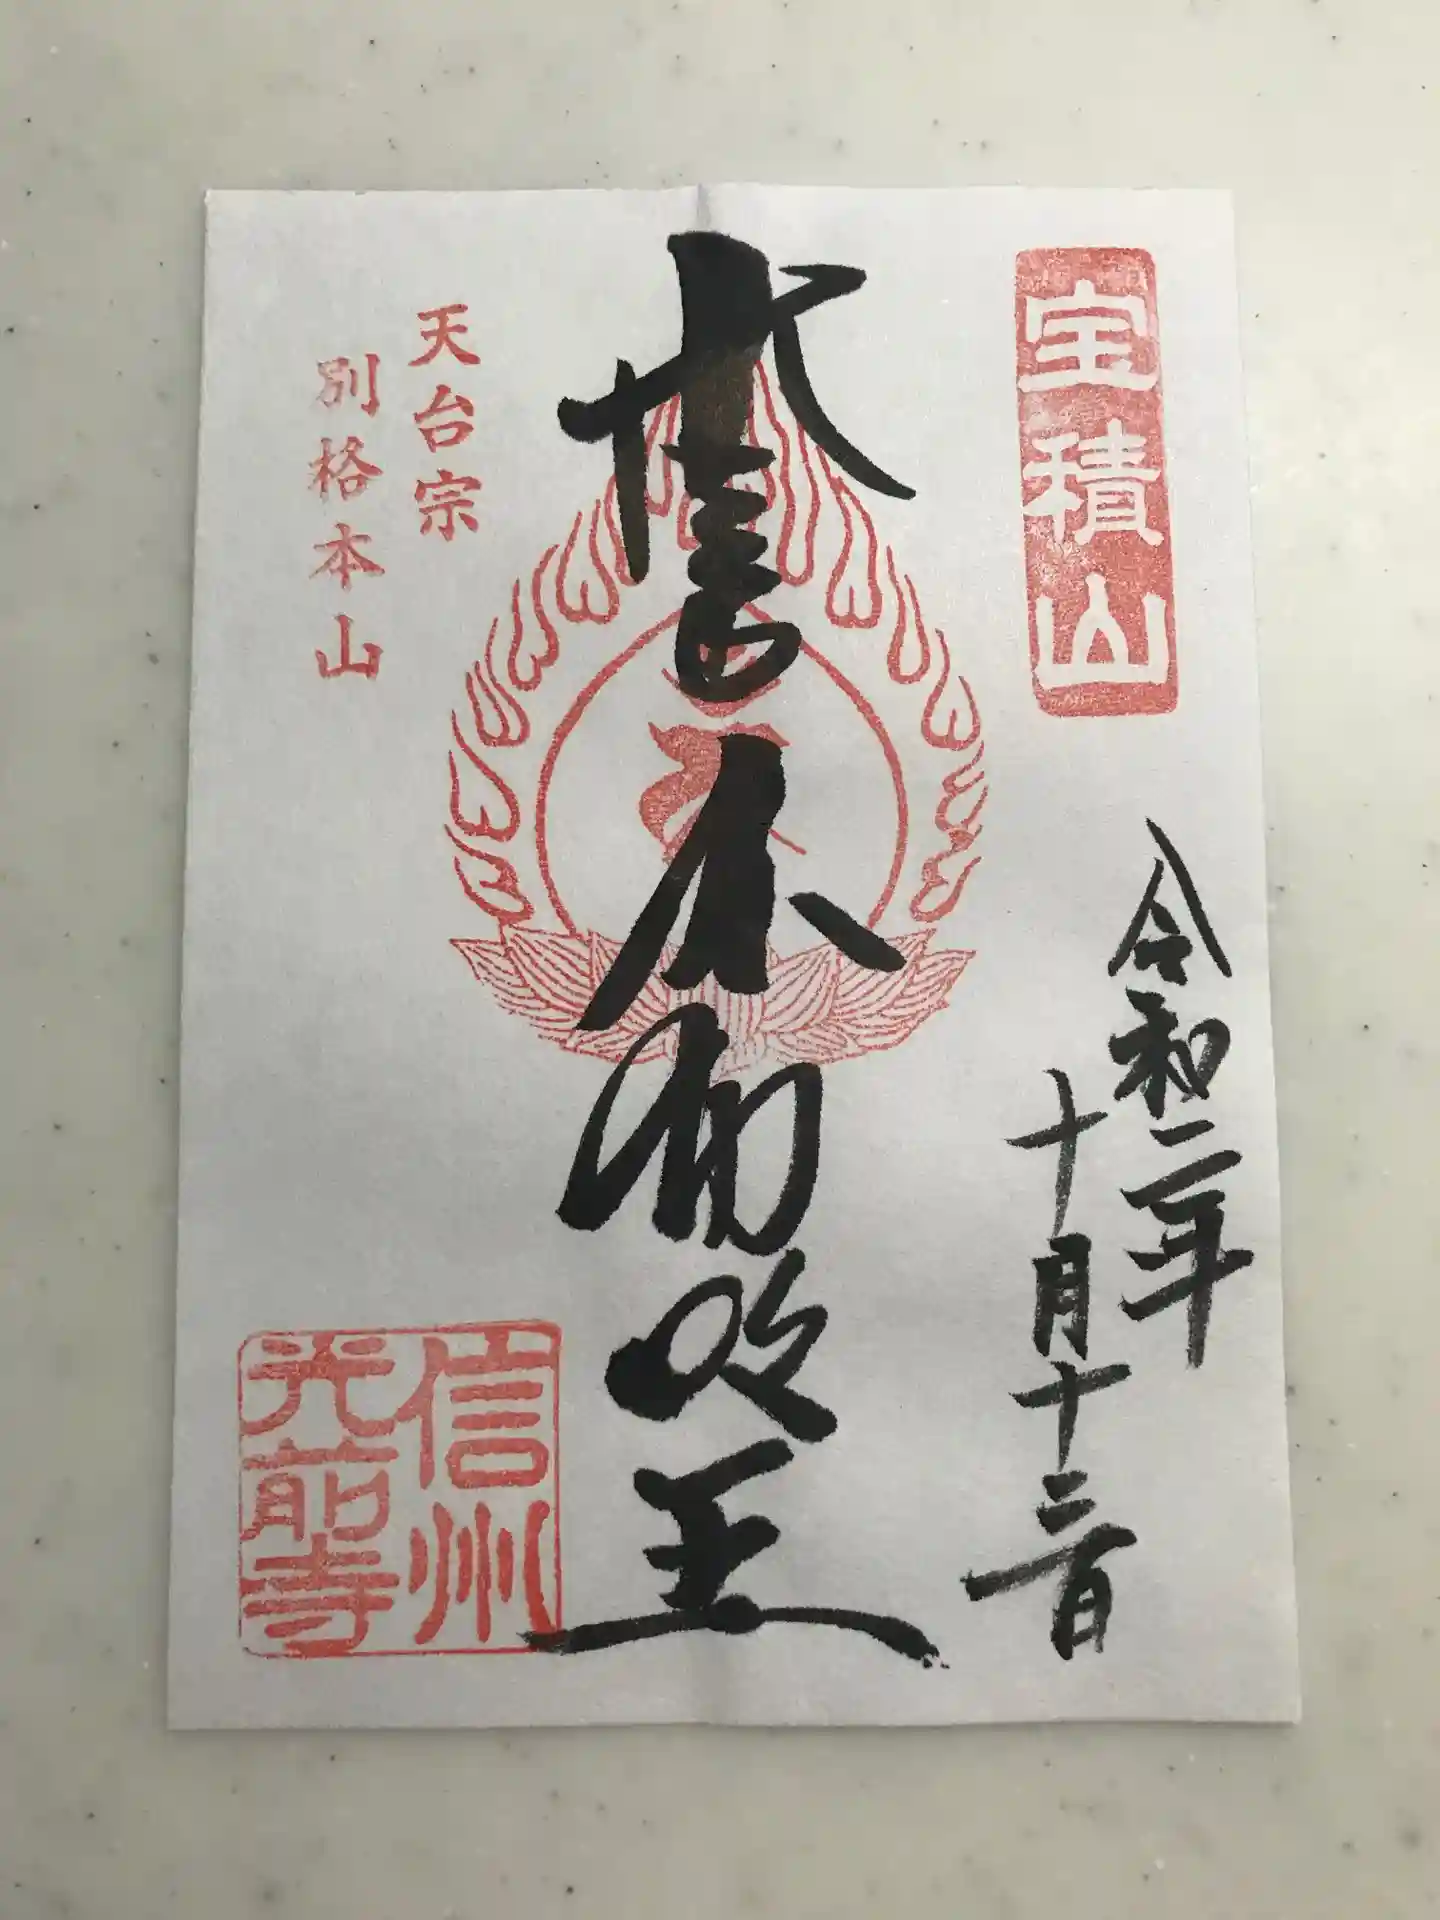 宝積山
令和二年
十月十三日
不動明王
天台宗
別格本山
信州
光前寺